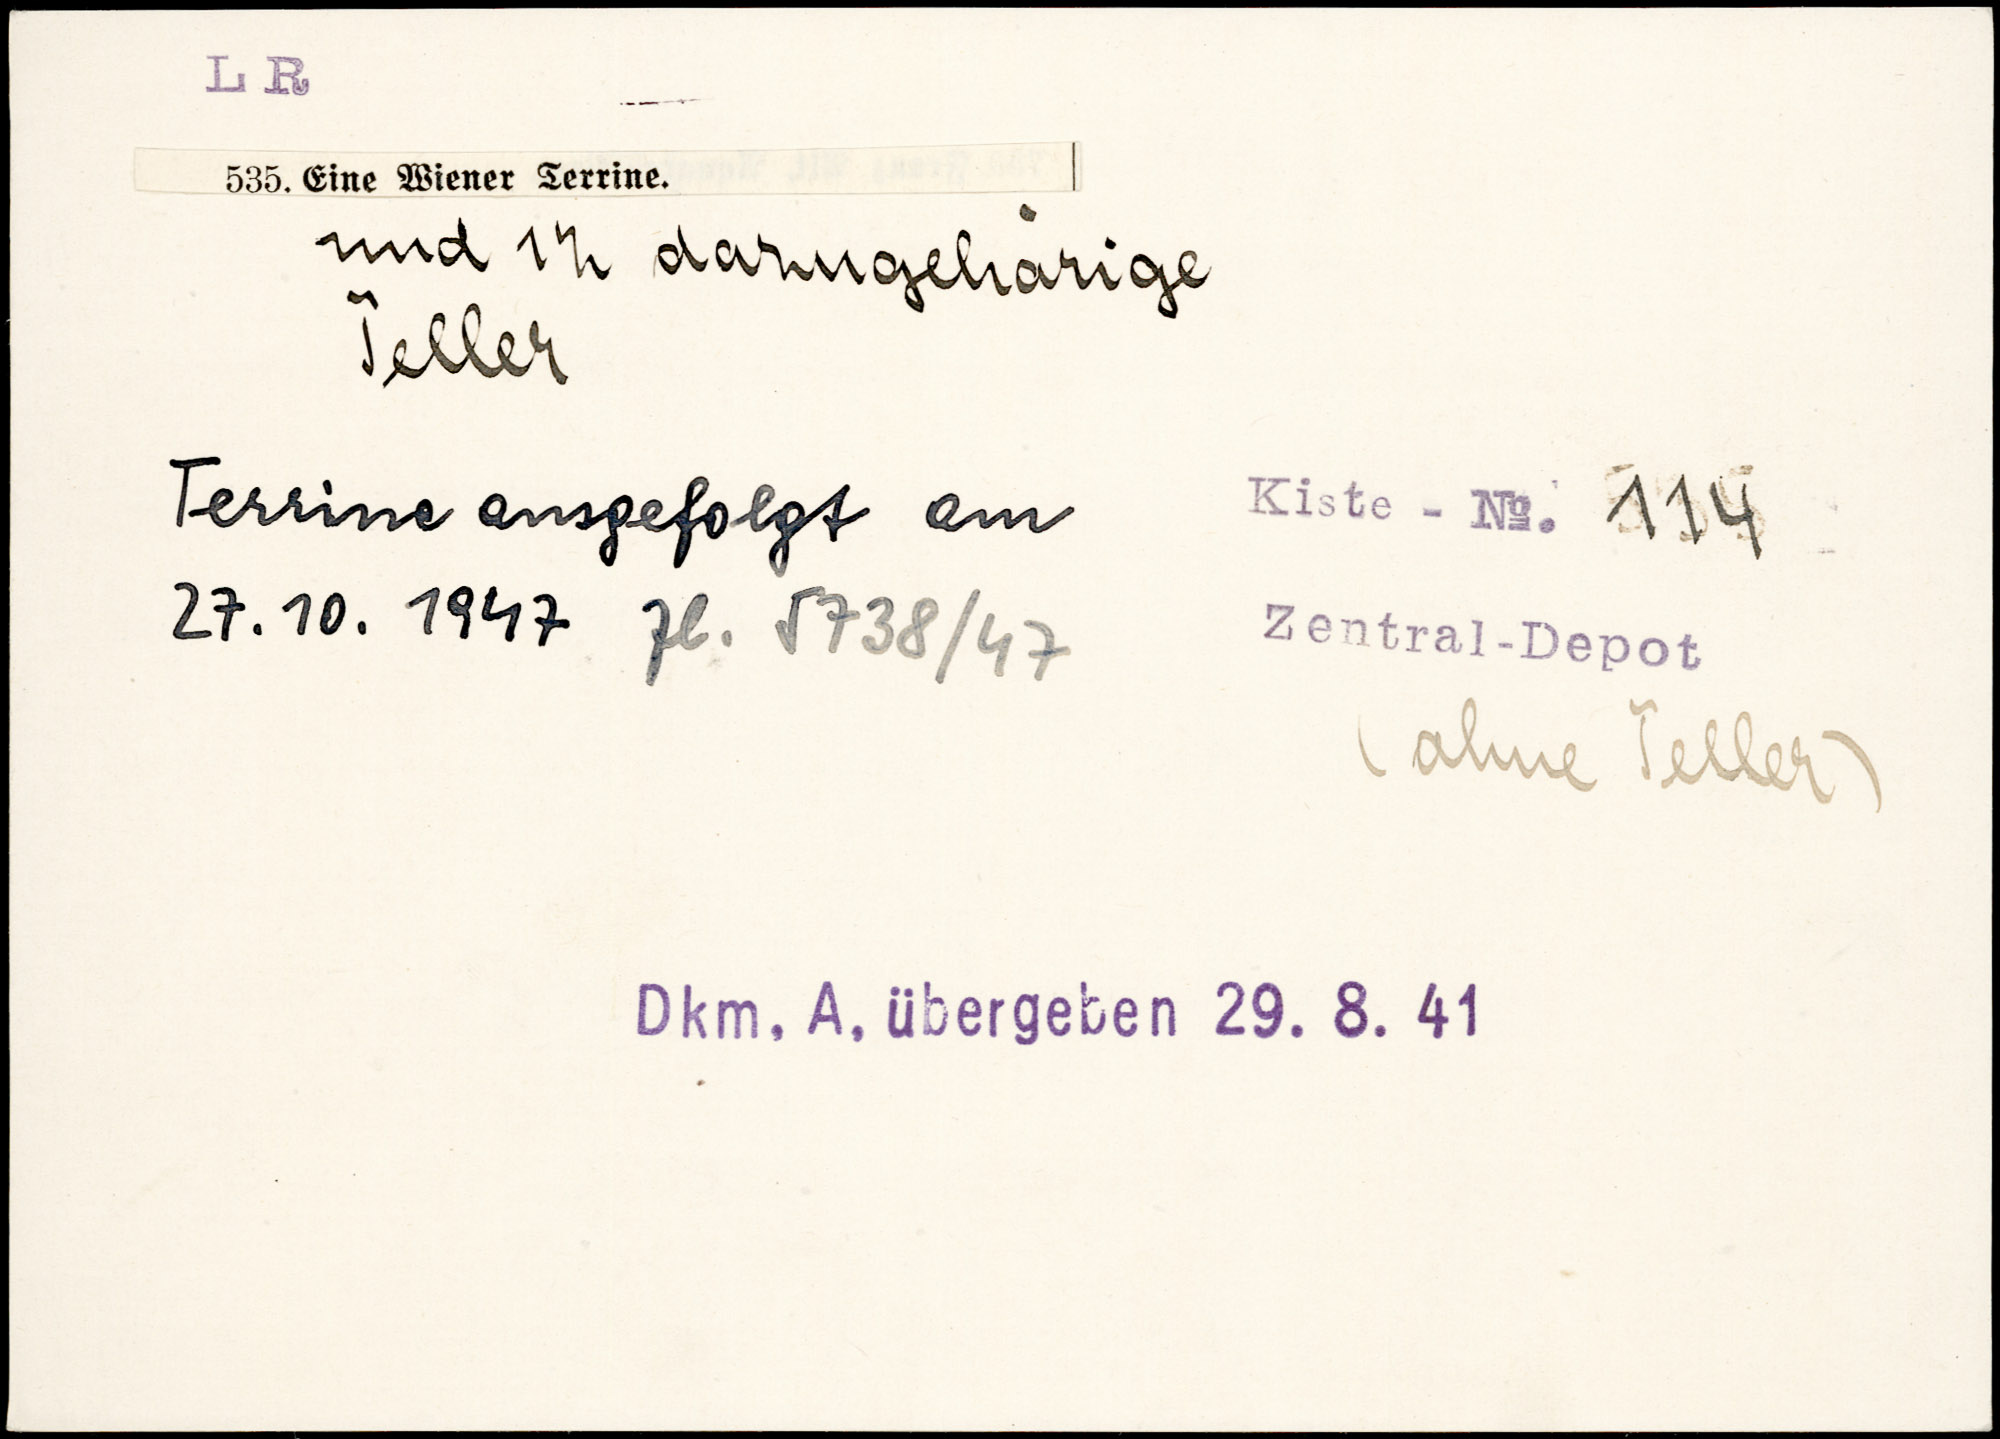 L R
535. Eine Wiener Terrine.
und 12 dazugehörige
Teller
Terrine ausgefolgt am
27. 10. 1947 Zl. 5738/47
Kiste - No. 114
Zentral-Depot
(ohne Teller)
Dkm. A. übergeben 29. 8. 41